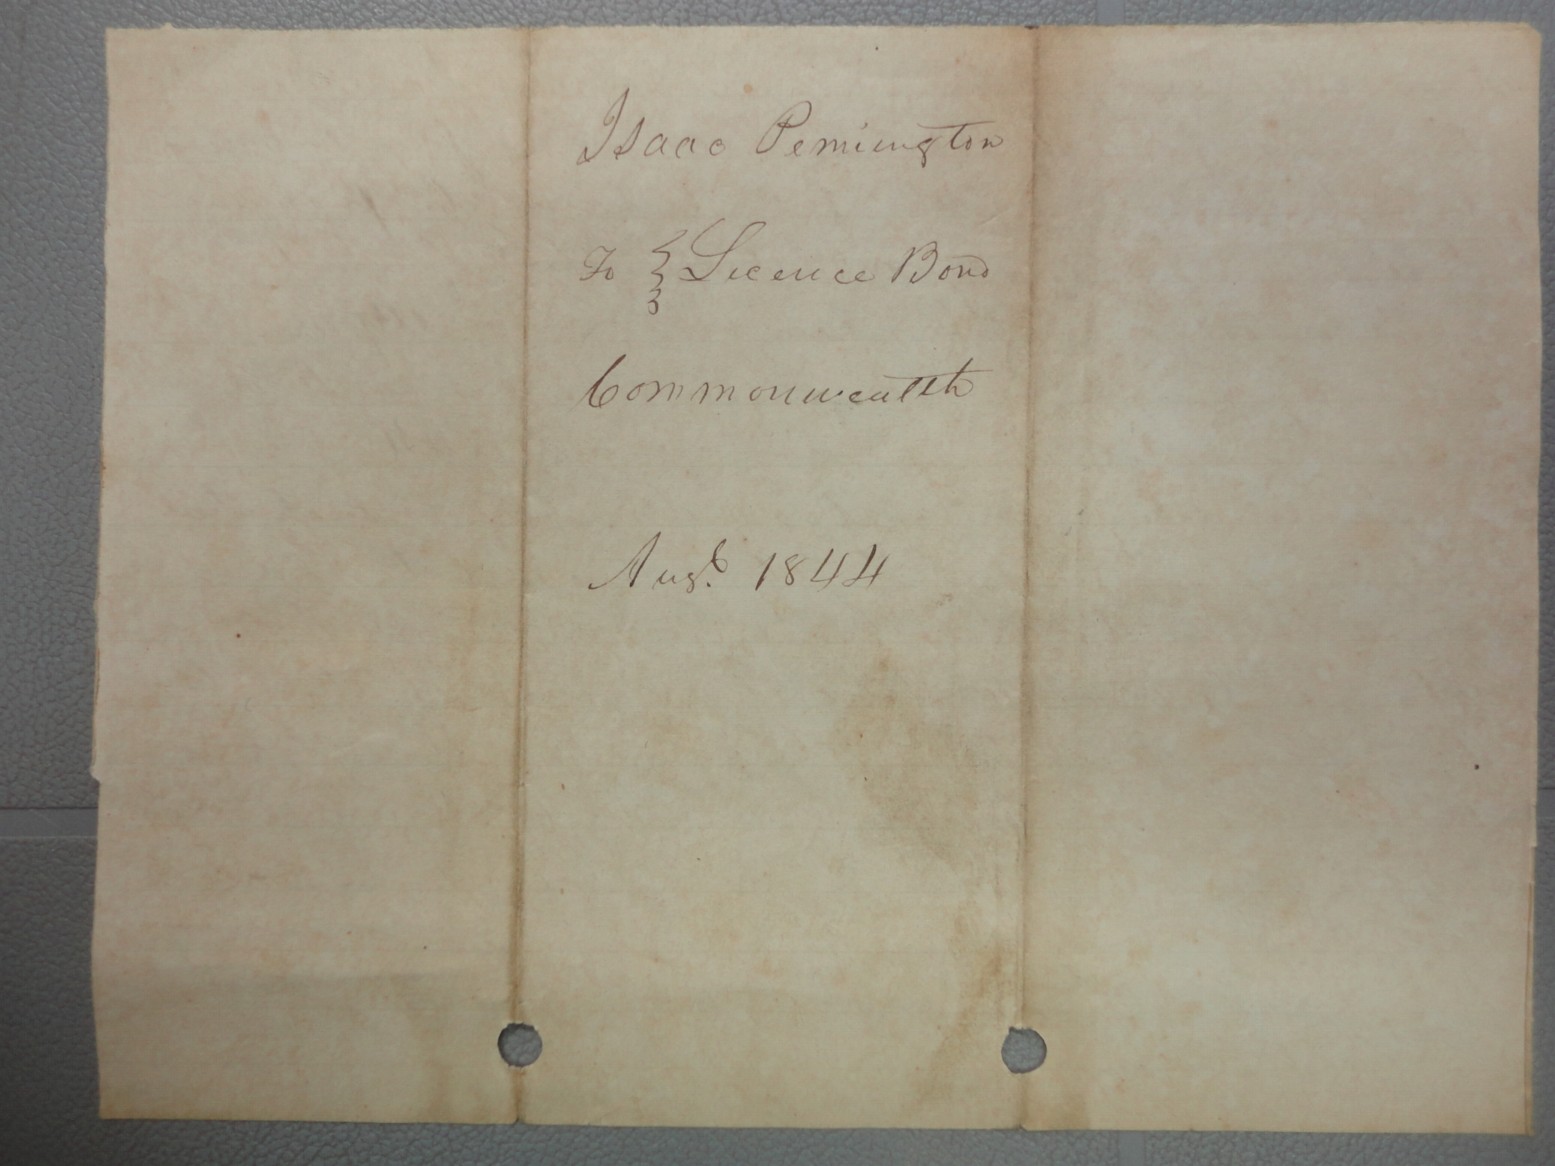 Isaac Pemington
To } Licence Bond
Commonwealth
Augt. 1844